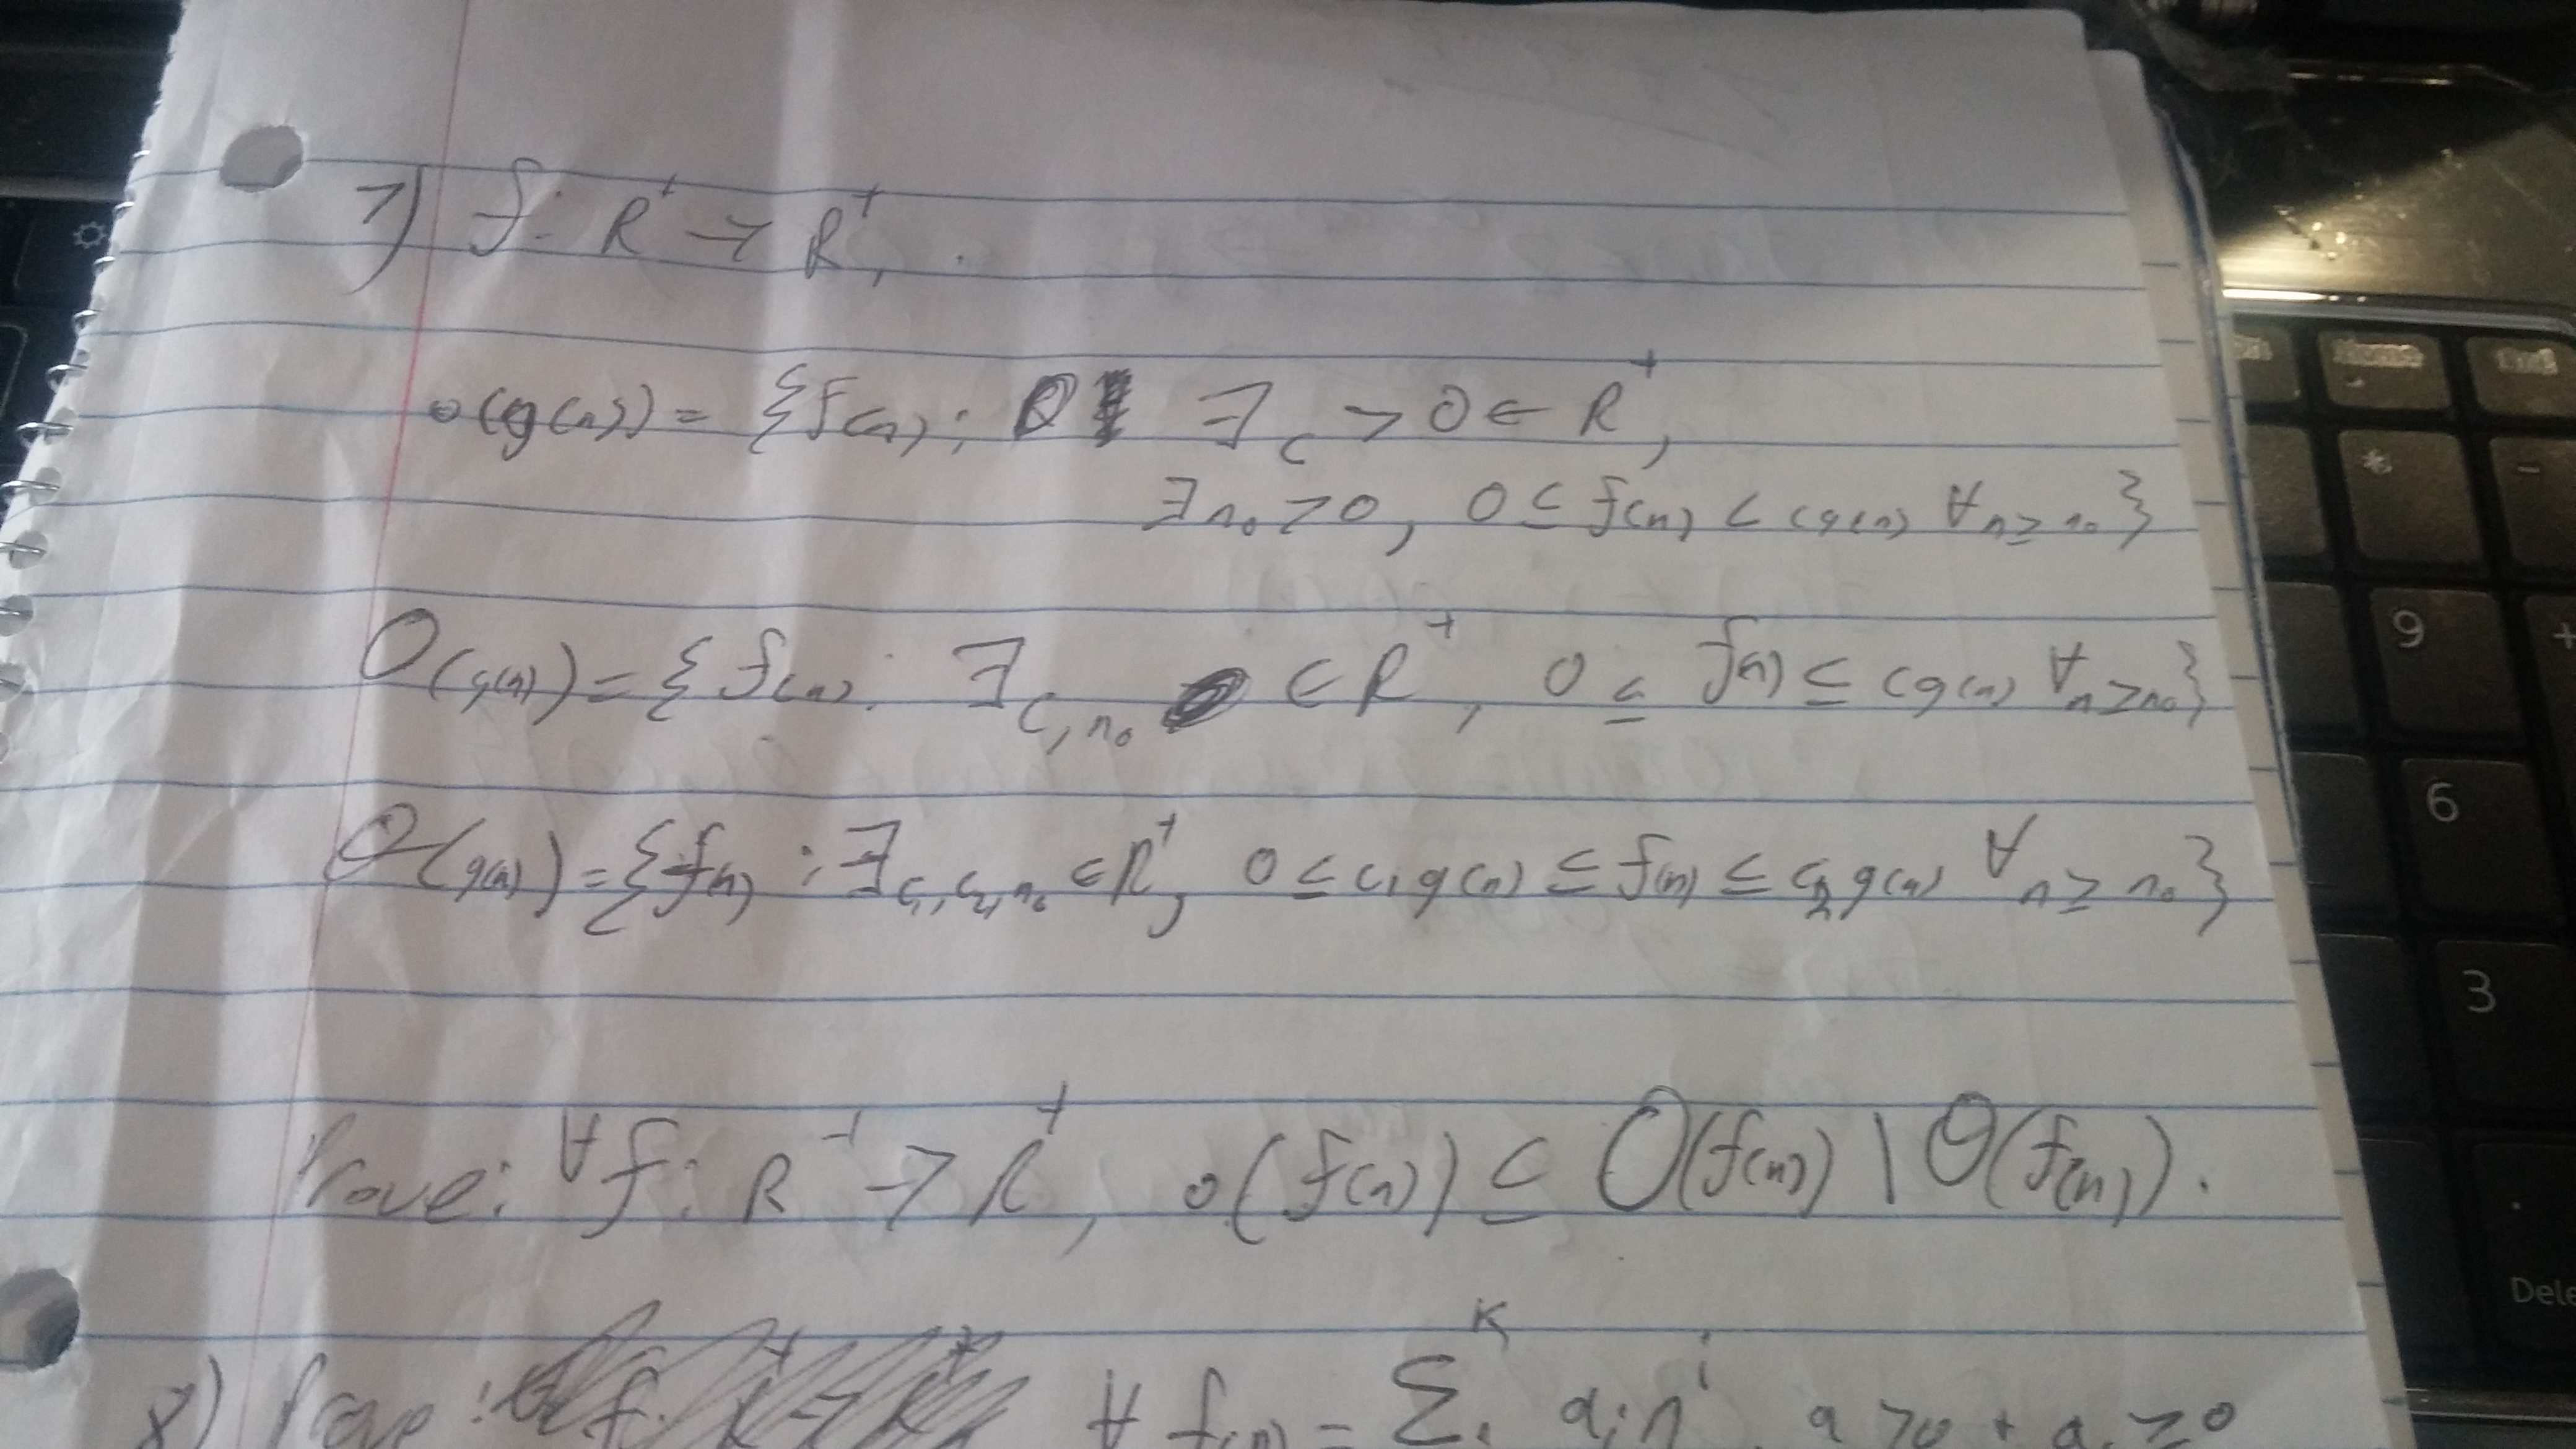 7) f: R⁺ → R⁺,
o(g(n)) = {f(n): ∃ c > 0 ∈ R⁺,
∃ n₀ > 0, 0 ≤ f(n) < cg(n) ∀ n ≥ n₀}
O(g(n)) = {f(n): ∃ c, n₀ ∈ R⁺, 0 ≤ f(n) ≤ cg(n) ∀ n ≥ n₀}
Θ(g(n)) = {f(n): ∃ c₁, c₂, n₀ ∈ R⁺, 0 ≤ c₁g(n) ≤ f(n) ≤ c₂g(n) ∀ n ≥ n₀}
Prove: ∀ f: R⁺ → R⁺, o(f(n)) ⊆ O(f(n)) \ Θ(f(n)).
8) Prove: ∀ f(n) = Σ aᵢnⁱ
K
9
6
3
*
-
+
.
Home